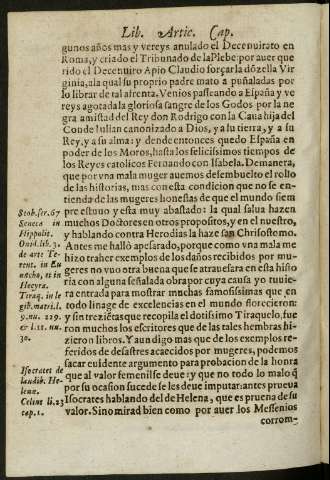 Lib. Artic. Cap.
gunos años mas y vereys anulado el Decenuirato en
Roma, y criado el Tribunado de la Plebe: por auer que
rido el Decenuiro Apio Claudio forçar la dõzella Vir
ginia, a la qual su proprio padre mato a puñaladas por
lo librar de tal afrenta. Venios passeando a España y ve
reys agotada la gloriosa sangre de los Godos por la ne
gra amistad del Rey don Rodrigo con la Caua hija del
Conde Iulian canonizado a Dios, y a su tierra, y a su
Rey, y a su alma: y dende entonces quedo España en
poder de los Moros, hasta los felicissimos tiempos de
los Reyes catolicos Fernando con Isabela. De manera,
que por vna mala muger auemos desembuelto el rollo
de las historias, mas con esta condicion que no se en-
tienda de las mugeres honestas de que el mundo siem
pre estuuo y esta muy abastado: la qual salua hazen
muchos Doctores en otros propositos, y en el nuestro,
y hablando contra Herodias la haze san Chrisostomo.
Antes me hallò apesarado, porque como vna mala me
hizo traher exemplos de los daños recebidos por mu-
geres no vuo otra buena que se atrauesara en esta histo
ria con alguna señalada obra por cuya causa yo tuuie-
ra entrada para mostrar muchas famosissimas que en
todo linage de excelencias en el mundo florecieron:
y sin trezientas que recopila el dotissimo Tiraquelo, fue
ron muchos los escritores que de las tales hembras hi-
zieron libros. Y aun digo mas que de los exemplos re-
feridos de desastres acaecidos por mugeres, podemos
sacar euidente argumento para probacion de la honra
que al valor femenil se deue: y que no todo lo malo q̃
por su ocasion sucede se les deue imputar: antes prueua
Isocrates hablando del de Helena, que es prueua de su
valor. Sino mirad bien como por auer los Messenios
corrom-
Stob. ser. 67
Seneca in
Hippolit.
Ouid. lib. 3.
de arte Te-
rent. in Eu
nucho, & in
Hecyra.
Tiraq. in le
gib. matri. l.
9. nu. 229.
& l. 11. nu.
30.
Isocrates de
laudib. He-
lenæ.
Celius li. 23
cap. 1.